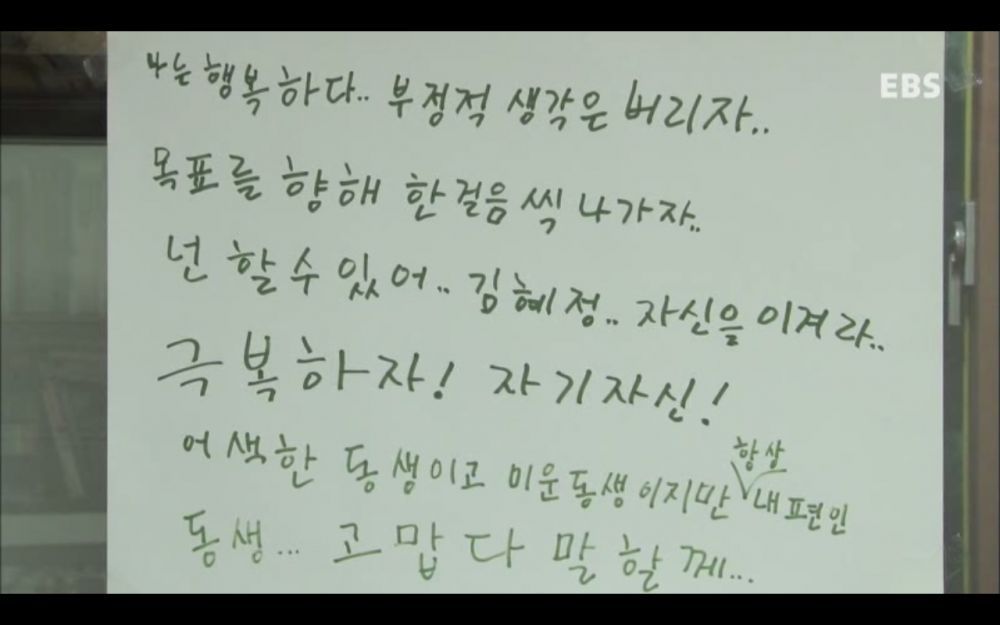 EBS
나는 행복하다.. 부정적 생각은 버리자..
목표를 향해 한걸음 씩 나가자..
넌 할 수 있어.. 김혜정.. 자신을 이겨라..
극복하자! 자기자신!
어색한 동생이고 미운동생이지만 항상 내 편인
동생... 고맙다 말할께...